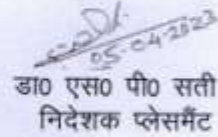 05-04-2023
डा0 एस0 पी0 सती
निदेशक प्लेसमैंट